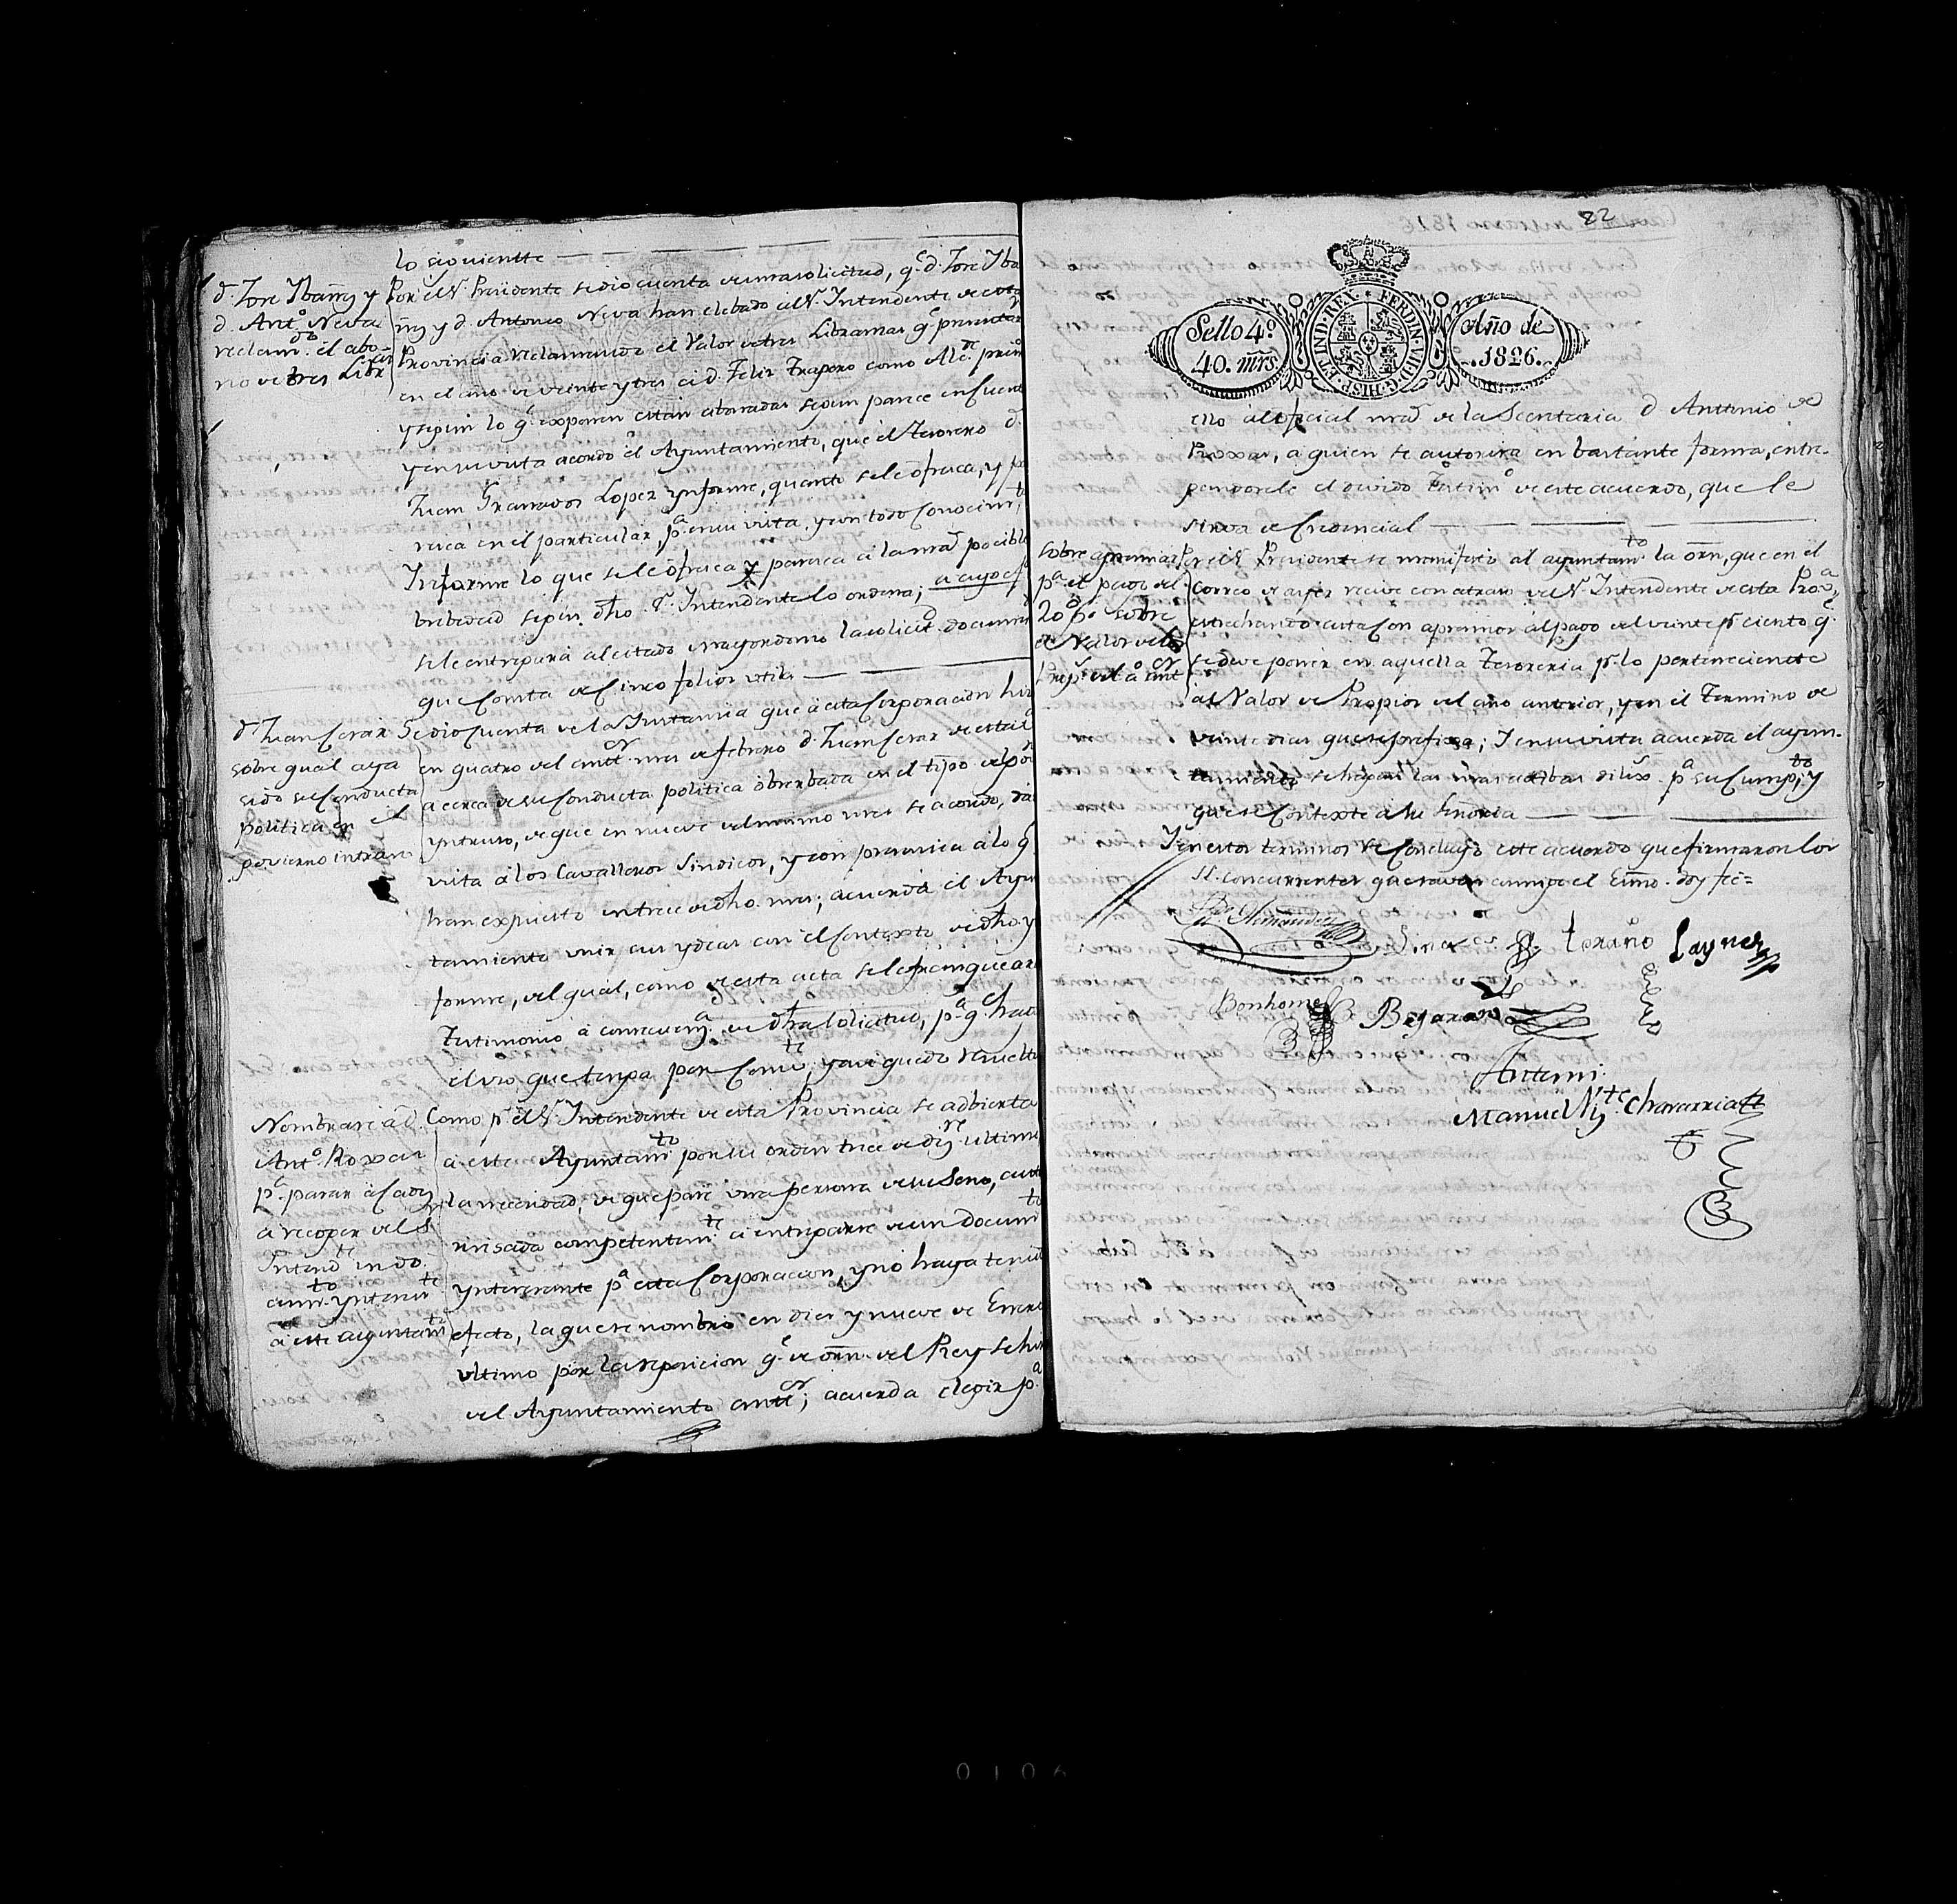 lo siguientte
d. Jose Ybañes y
d. Antº. Neva
reclamdo. el abo-
no de tres Libr
Por el Sr. Presidente se dio cuenta de una solicitud, qe. d. Jose Yba
ñes y d. Antonio Neva han elebado al Sr. Intendente de esta
Provincia reclamando el Valor de tres Libramas qe. presentar
en el año de veinte y tres a d. Felix Trapero como Alce. prim
y segun lo qe. exponen estan abonadas segun parece en Cuent
y en su vista acordo el Ayuntamiento, que el Tesorero d.
Juan Granados Lopez ynforme, quanto se le ofresca, y pa
resca en el particular, pa. en su vista, y con todo Conocimto.
Informe lo que se le ofresca y paresca a la mad. pocible
brebedad segun dho. Sr. Intendente lo ordena; a cuyo ef
se le entregará al citado mayordomo la solicitd. documen
que Consta de Cinco folios utiles
dn. Juan Cesar
sobre qual aya
sido su Conducta
politica en el
govierno intruso
Se dio Cuenta de la Instancia que a esta Corporacion hizo
en quatro del antter. mes de febrero d. Juan Cesar de esta
acerca de su Conducta politica obserbada en el tipo. del go
yntruso, de que en nueve del mismo mes se acordo, dar
vista á los Cavalleros Sindicos, y con presencia á lo q.
han expuesto en trece de dho. mes; acuerda el Ayun
tamiento unir sus ydeas con el Contexto de dho. y
forme, del qual, como de esta acta se le franqueara
Testimonio á consecuena. de dha solicitud, pa. qe. haga
el uso que tenga por Conte.; y asi quedo resuelto
Nombrase a d.
Antº. Roxas
pa. pasar á Cadiz
a recoger del S.
Intendte. un do-
cumto. yntersnte
á este ayuntamto.
Como pr. el Sr. Intendente de esta Provincia se adbierta
á este Ayuntamto. por su orden trece de Dizre. ultimo
la necesidad, de que pase una persona de su Seno, auto
risada competentemte. á entregarse de un documto.
ynteresante pa. esta Corporacion, y no haya tenido
efecto, la que se nombró en dies y nueve de Enero
ultimo por la reposicion qe. de orn. del Rey se hizo
del Ayuntamiento antter; acuerda elegir pa.
82
Sello 4º.
40. mrs.
HISP. ET IND. REX. FERDIN. VII. D. G.
Año de
1826.
ello al oficial mar. de la Secretaria d Anttonio de
Roxas, a quien se autorisa en bastante forma, entre-
gandosele el devido Testimº. de este acuerdo, que le
sirva de Credencial
sobre apremiar
pa. el pago del
20 p% sobre
el Valor de los
Props. del aº. antter
Por el Sr. Presidente se manifestó al ayuntamto. la orn, que en el
Correo de ayer recive con atraso del Sr. Intendente de esta Prova.,
estrechando a esta Con apremios al pago del veinte pr. ciento qe.
se deve poner en aquella Tesoreria pr. lo pertenecientte
al Valor de Propios del año anterior, y en el Termino de
veinte dias que se prefixa; Y en su vista acuerda el ayun-
tamiento se hagan las mas actibas diligs. pa. su Cumpto. y
que se Contexte a su Señoria
Y en estos terminos se Concluyó este acuerdo que firmaron los
SS. concurrentes que saven conmigo el Essno. doy fee=
Fernandez
Linares
toraño
Layner
Bonhome
Bejarano
Antemi
Manuel Vte. Chavarria
0106